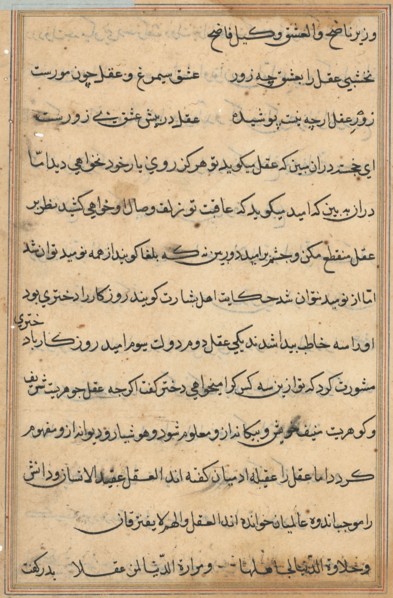 وزیر ناضح والعشق وکیل فاضح
نخشبی عقل را بعشق چه زور عشق سیمرغ و عقل چون مورست
زور عقل ارچه پوشیده عقل در پیش عشق بی زورست
ای دران مبین که عقل میکوید تو هرکز روی یار خود نخواهی دید اما
دران به بین که امید میکوید که عاقبت تو زلف وصال او خواهی کشید نظر بر
عقل منقطع مکن و چشم بر امید دور بین نه که بلغا کویند از همه نومید توان شد
اما از نومید نتوان شد حکایت اهل بشارت کویند روزی کار را دختری بود
او را سه خاطب پیدا شدند یکی عقل دوم دولت سیوم امید روزکار با دختری
مشورت کرد که تو ازین سه کس کرا میخواهی دختر کفت اکرچه عقل جوهریت شریف
و کوهریت منیف خویش و بیکانه از و معلوم شود و هوشیار و دیوانه از و مفهوم
کردد اما عقل را عقیله آدمیان کفته اند العقل عقیلة الانسان و دانش
را موجب اندوه عالمیان خوانده اند العقل والهم لا یفترقان
وحلاوة الدنیا لجاهلها ومرارة الدنیا لمن عقلا پدر کفت